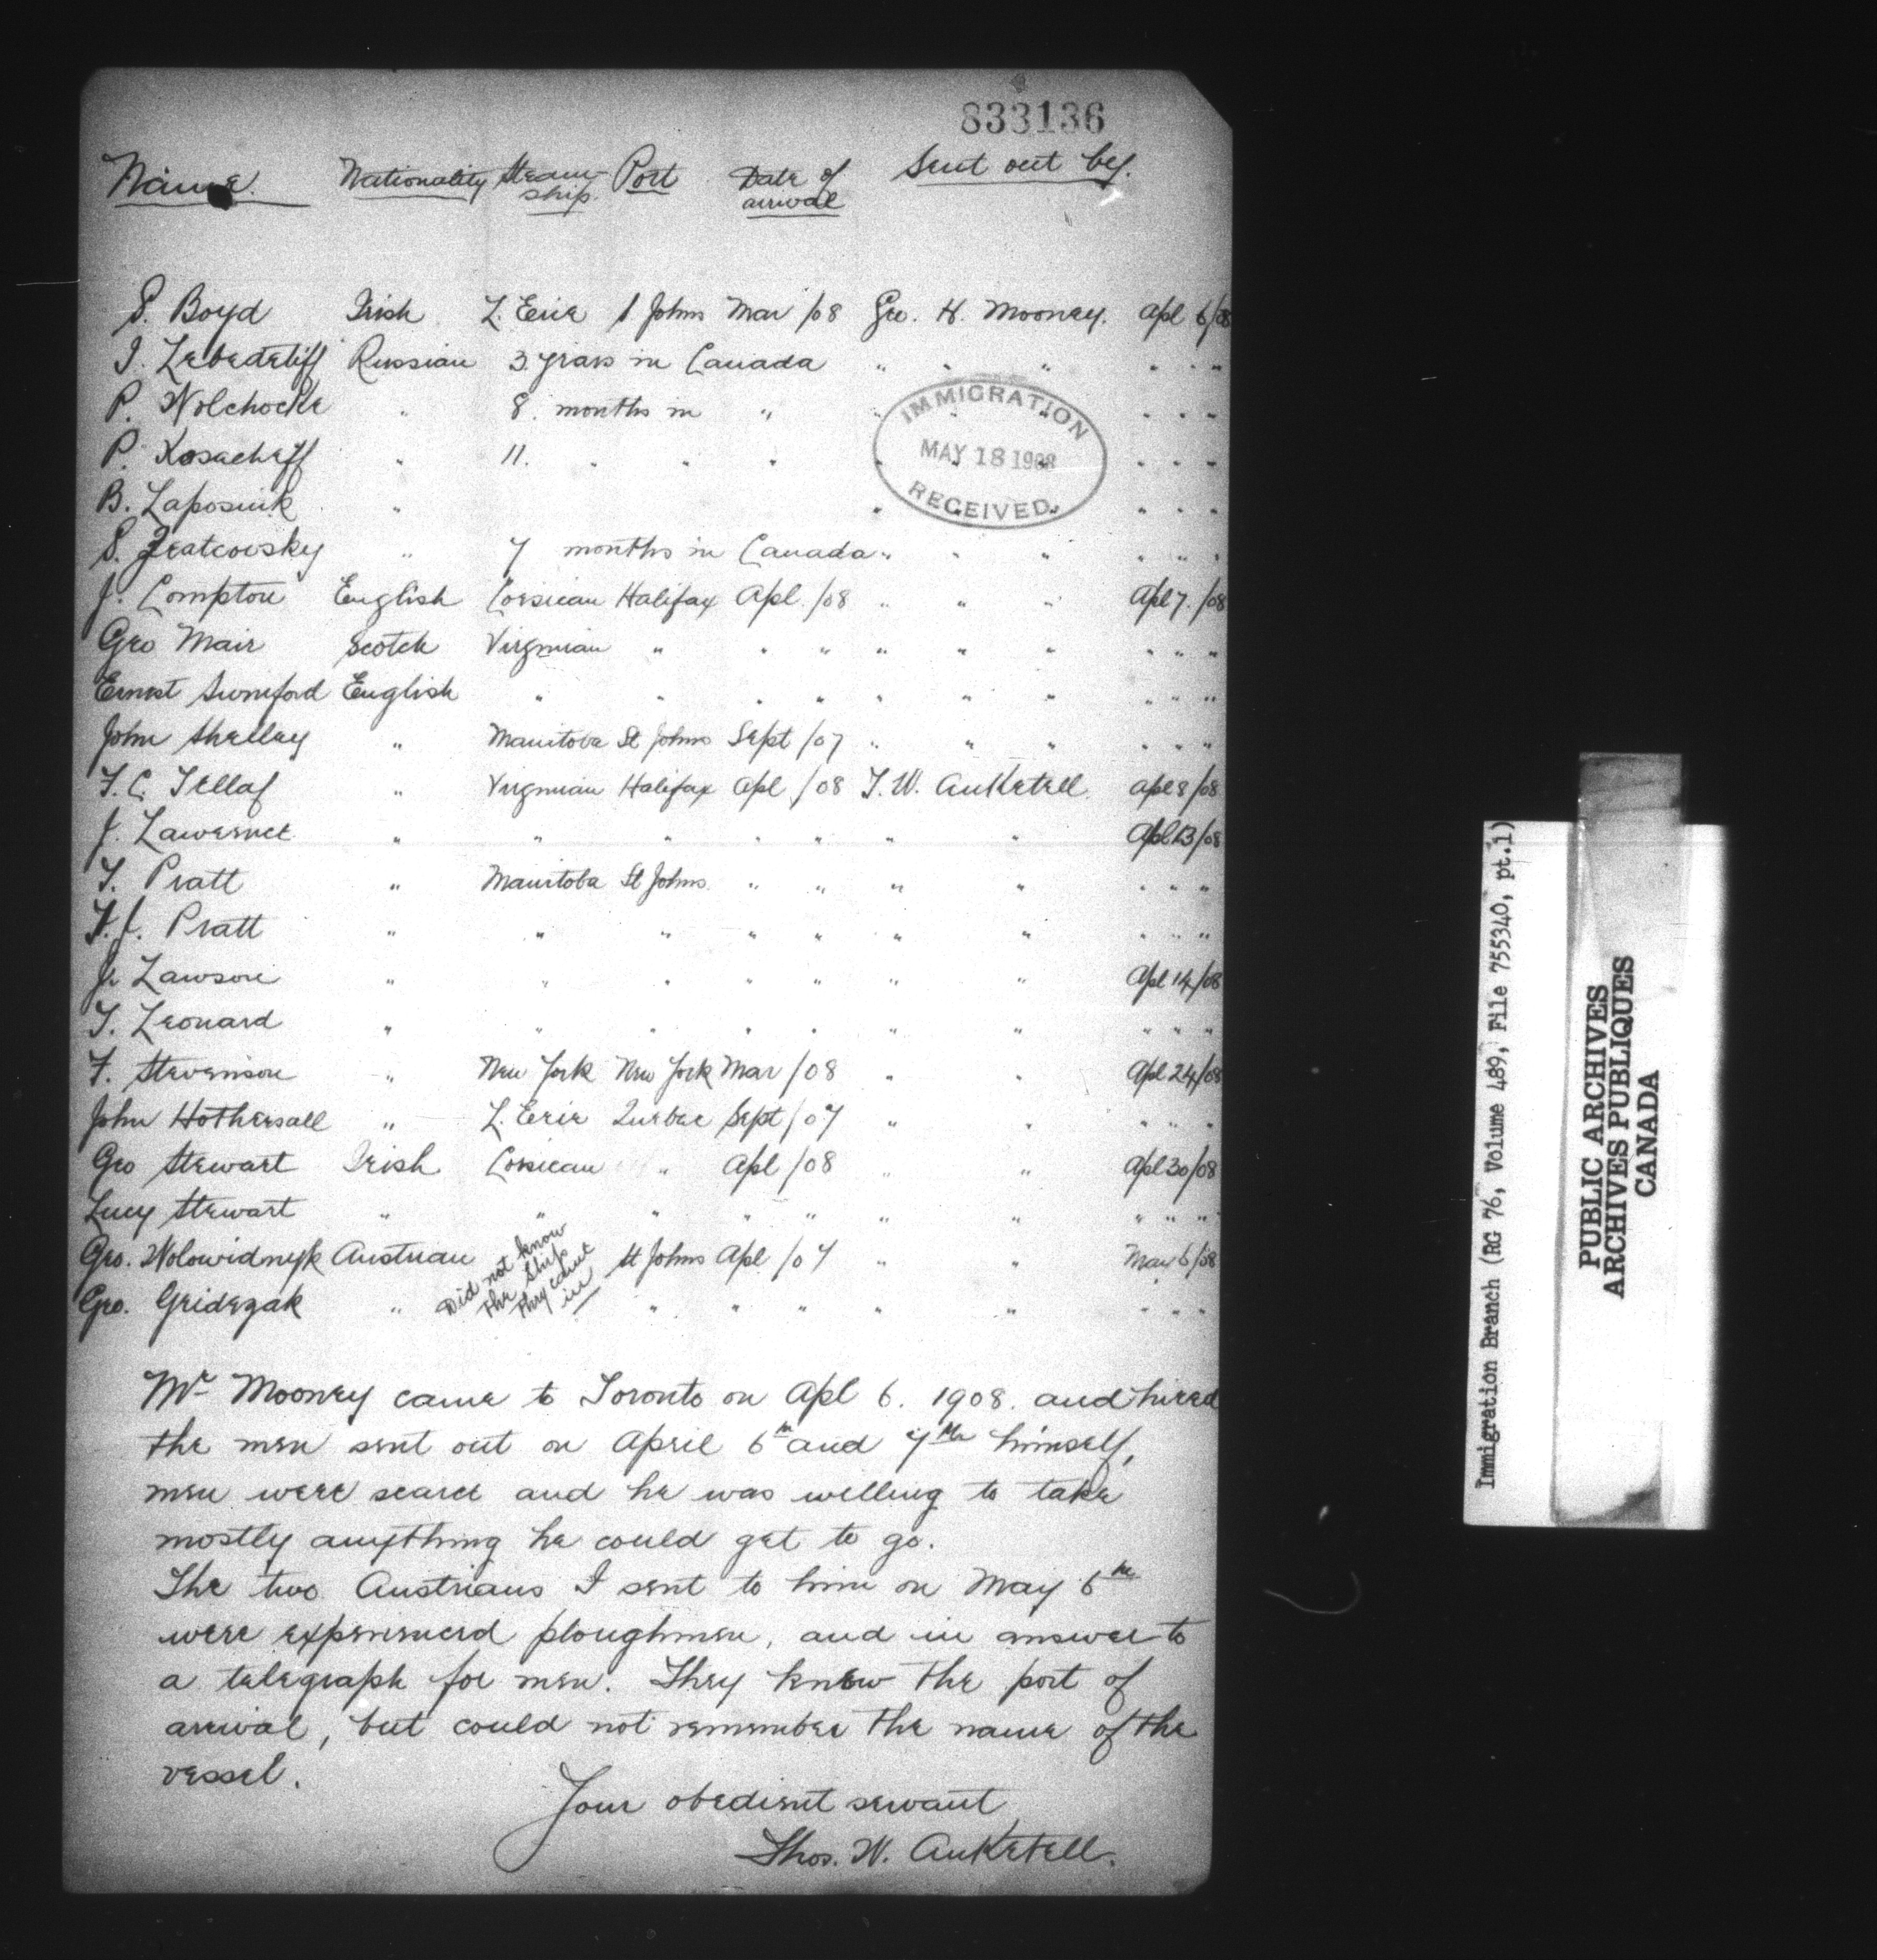 833136
Name. Nationality Steam- Port Date of Sent out by.
ship. arrival
S. Boyd Irish L. Erie S Johns Mar /08 Geo. H. Mooney. Apl 6/08
I. Lebedeliff Russian 3 years in Canada " " " " " "
P. Wolchocke " 8. months in " " " " " " "
P. Kosacheff " 11. " " " " " " " " "
B. Laposnik " " " " " " "
S. Zratcovsky " 7 months in Canada " " " " " "
J. Compton English Corsican Halifax Apl. /08 " " " Apl 7. /08
Geo Mair Scotch Virginian " " " " " " " " "
Ernest Swinford English " " " " " " " " " "
John Shelley " Manitova St Johns Sept /07 " " " " " "
F. C. Tellaf " Virginian Halifax Apl /08 T. W. AuKetell. Apl 8/08
J. Lawernce " " " " " " " Apl 13/08
T. Pratt " Manitoba St Johns. " " " " " " "
H. J. Pratt " " " " " " " " " "
J. Lawson " " " " " " " Apl 14/08
T. Leonard " " " " " " " " " "
F. Stevenson " New York New York Mar /08 " " Apl 24/08
John Hothersall " L. Erie Quebec Sept /07 " " " " "
Geo Stewart Irish Corsican " Apl /08 " " Apl 30/08
Lucy Stewart " " " " " " " " " "
Geo. Wolowidnyk Austrian Did not know St Johns Apl /07 " " May 6/08
the ship
they came
in
Geo. Gridezak " " " " " " " " "
IMMIGRATION
MAY 18 1908
RECEIVED
Mr Mooney came to Toronto on Apl 6. 1908. and hired
the men sent out on April 6th and 7th himself,
men were scarce and he was willing to take
mostly anything he could get to go.
The two Austrians I sent to him on May 6th
were experienced ploughmen, and in answer to
a telegraph for men. They knew the port of
arrival, but could not remember the name of the
vessel.
Your obedient servant
Thos. W. AuKetell.
Immigration Branch (RG 76, Volume 489, File 755340, pt.1)
PUBLIC ARCHIVES
ARCHIVES PUBLIQUES
CANADA